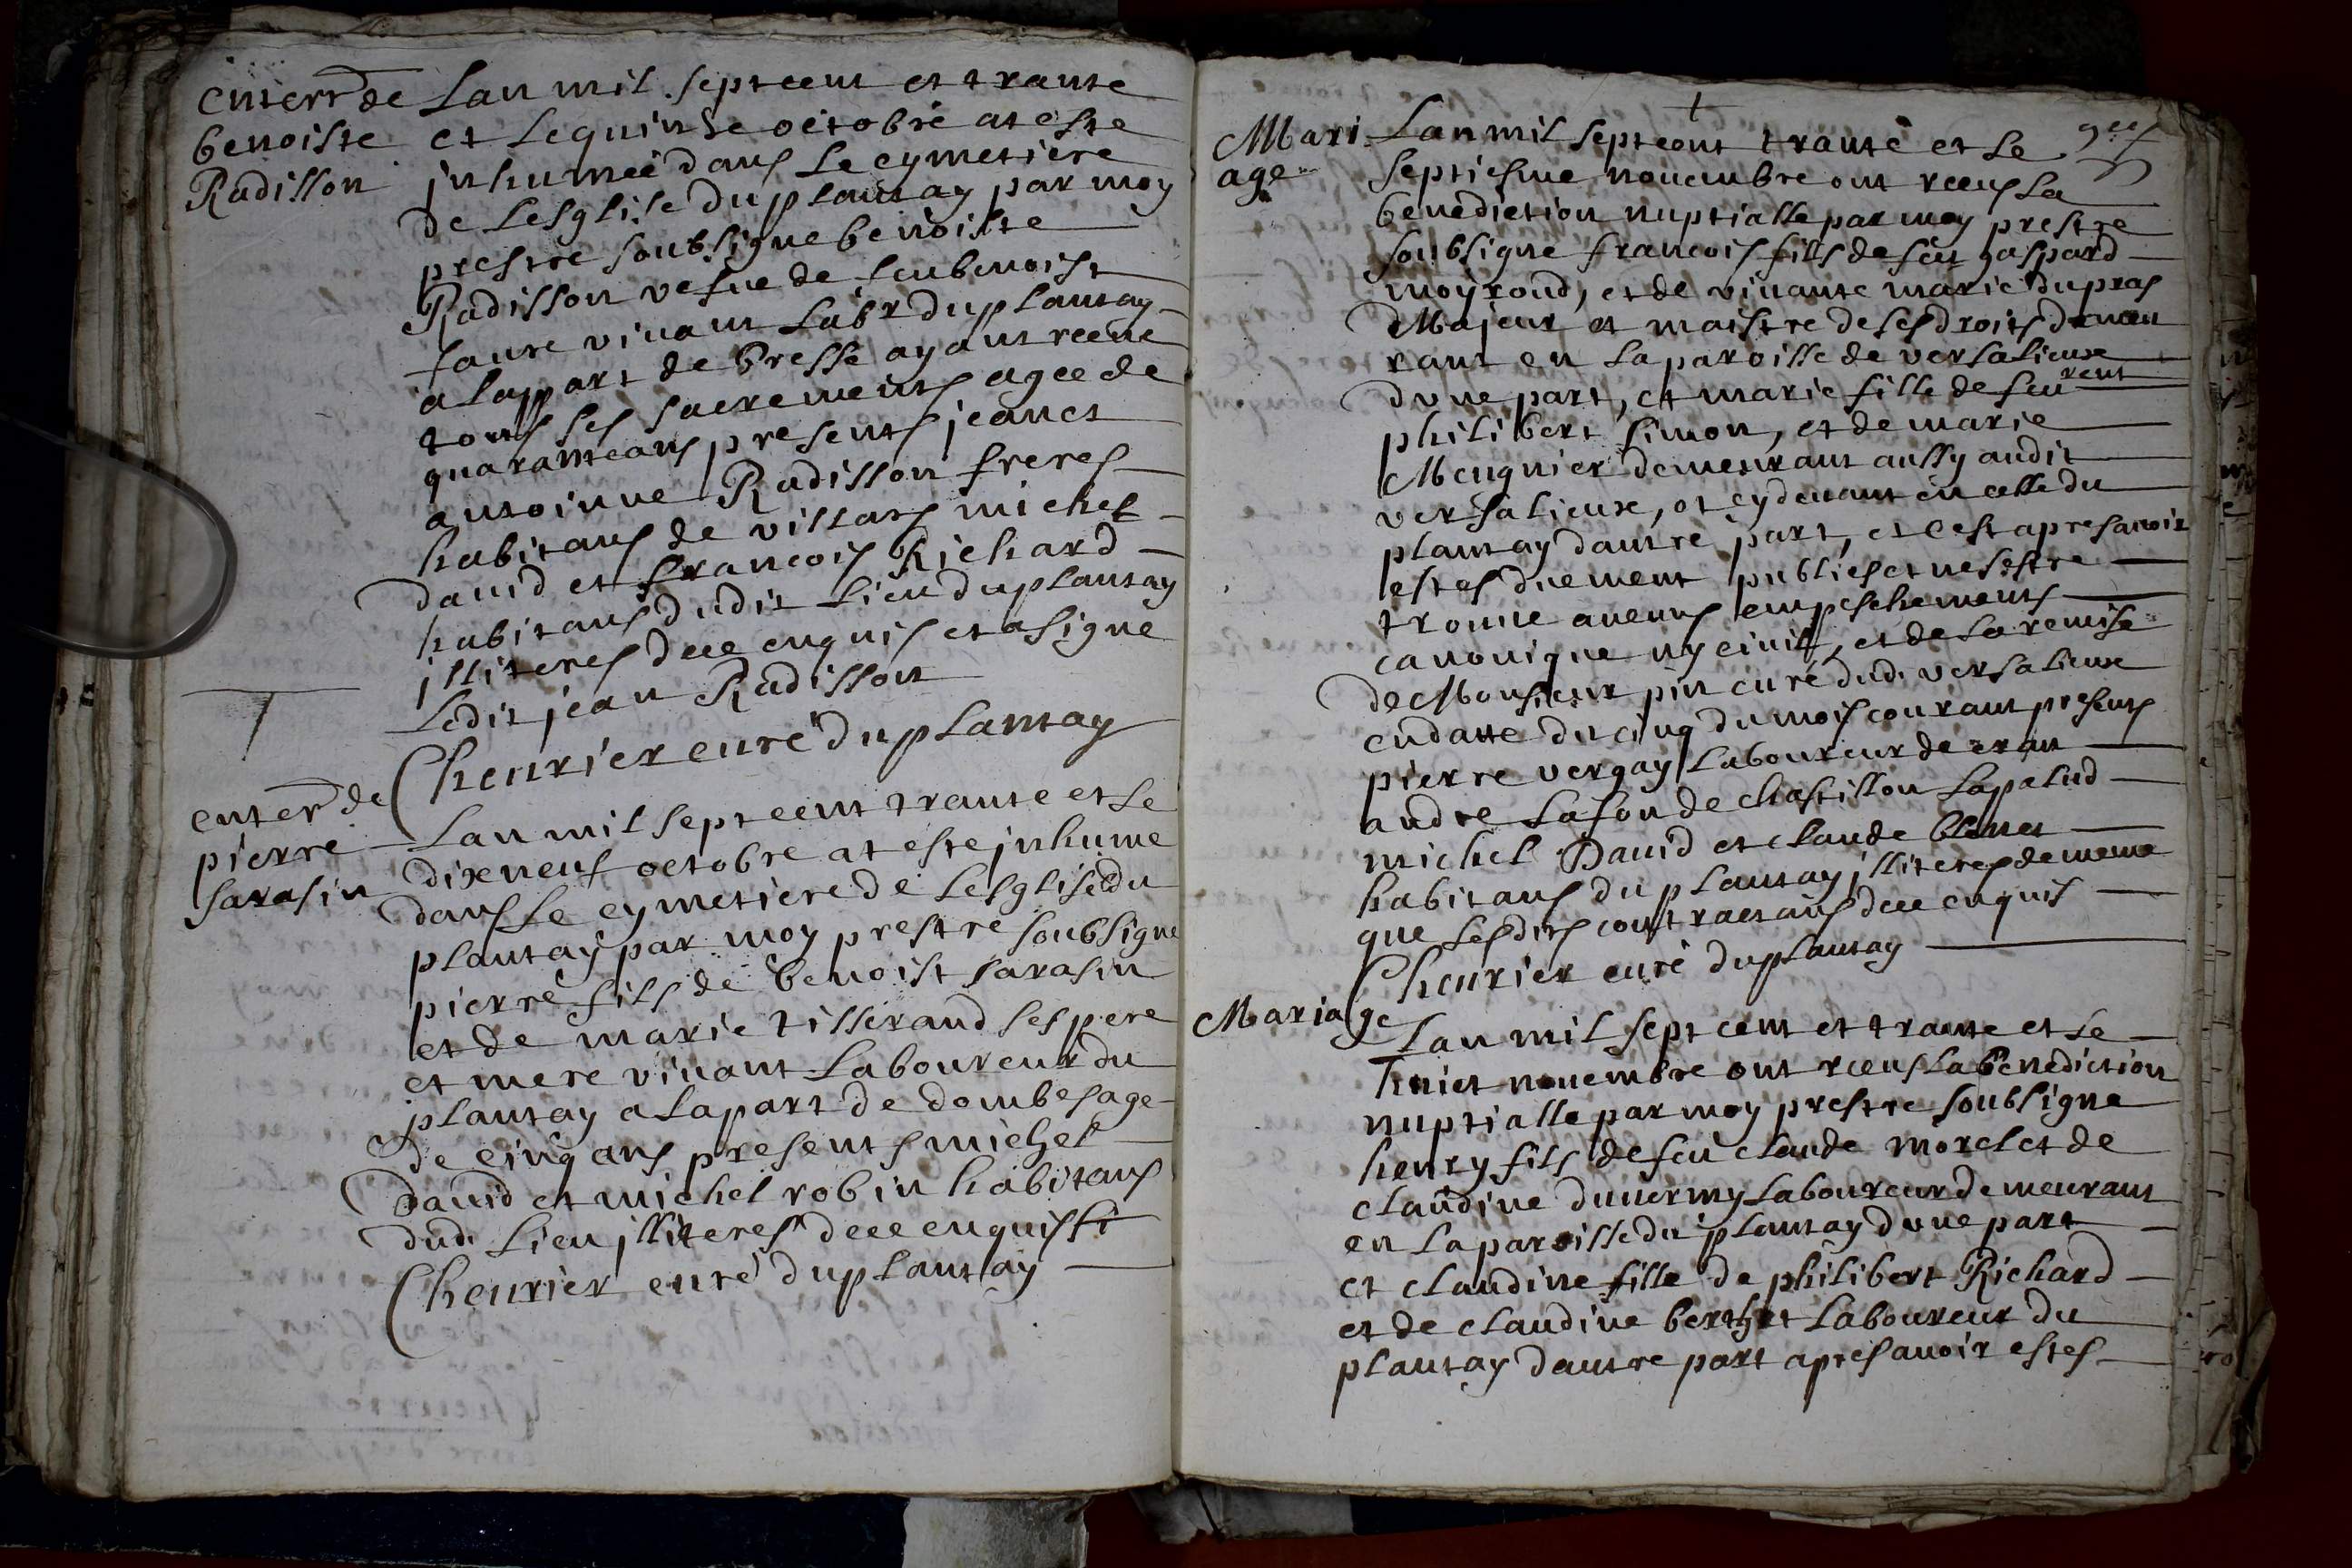 enterr de
benoiste
Radisson
Lan mil septcent et trante
et Lequinse octobre at este
jnhumeè dans Le cymetiere
de Lesglise du plantay par moy
prestre soubsigne benoiste
Radisson vefue de feu benoist
faure viuant Labr du plantay
a lappart de bresse ayant receue
tous ses sacrements agee de
quarante ans presents jean et
antoinne Radisson freres
habitans de villars michel
dauid et francois Richard
habitans dudit Lieu du plantay
jlliteres dece enquis et a signe
Ledit jean Radisson
Cheurier curé du plantay
enterr de
pierre
sarasin
Lan mil septcent trante et Le
dixneuf octobre at este jnhume
dans Le cymetiere de Lesglise du
plantay par moy prestre soubsigne
pierre fils de benoist sarasin
et de marie tisserand ses pere
et mere viuant Laboureur du
plantay a lapart de dombes age
de cinq ans presents michel
dauid et michel robin habitans
dud. Lieu jlliteres dece enquis
Cheurier curé du plantay
Mari
age
Lan mil septcent trante et Le
septiesme nouembre ont receus La
benediction nuptialle par moy prestre
soubsigne francois fills de feu gaspard
moyroud, et de viuante marie dupras
Majeur et maistre de ses droits demeu
rant en La paroisse de versalieux
dvne part, et marie fille de feu
philibert simon, et de marie
Meugnier demeurant aussy audit
versalieux, et cydeuant en celle du
plantay dautre part, et cest apres auoir
estes duement publies et ne sestre
trouue aucuns empeschements
canonique ny ciuil, et de La remise
de Monsieur pin curé dud. versalieux
en datte du cinq du mois courant presents
pierre vergay Laboureur de cran
andre Lafon de chastillon Lapalud
michel Dauid et claude
habitans du plantay jlliteres de meme
que Lesdits contractans dece enquis
Cheurier curé du plantay
Mariage
Lan mil sept cent et trante et Le
huict nouembre ont receus La benediction
nuptialle par moy prestre soubsigne
henry fils de feu claude morel et de
claudine duuerny Laboureur demeurant
en La paroisse du plantay dvne part
et claudine fille de philibert Richard
et de claudine berthet Laboureur du
plantay dautre part apres auoir estes